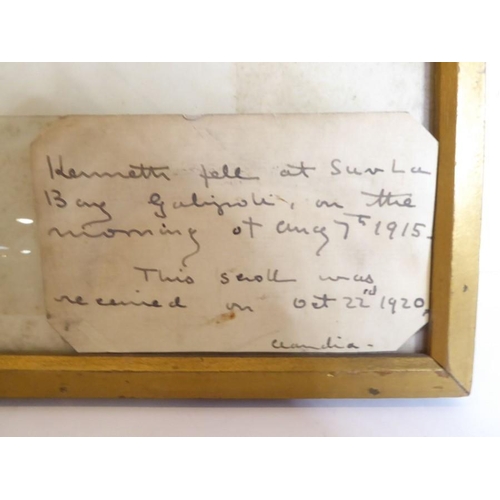 Kenneth fell at Suvla
Bay Galipoli, on the
morning of Aug 7th 1915.
This scroll was
received on Oct 22nd 1920,
Claudia -